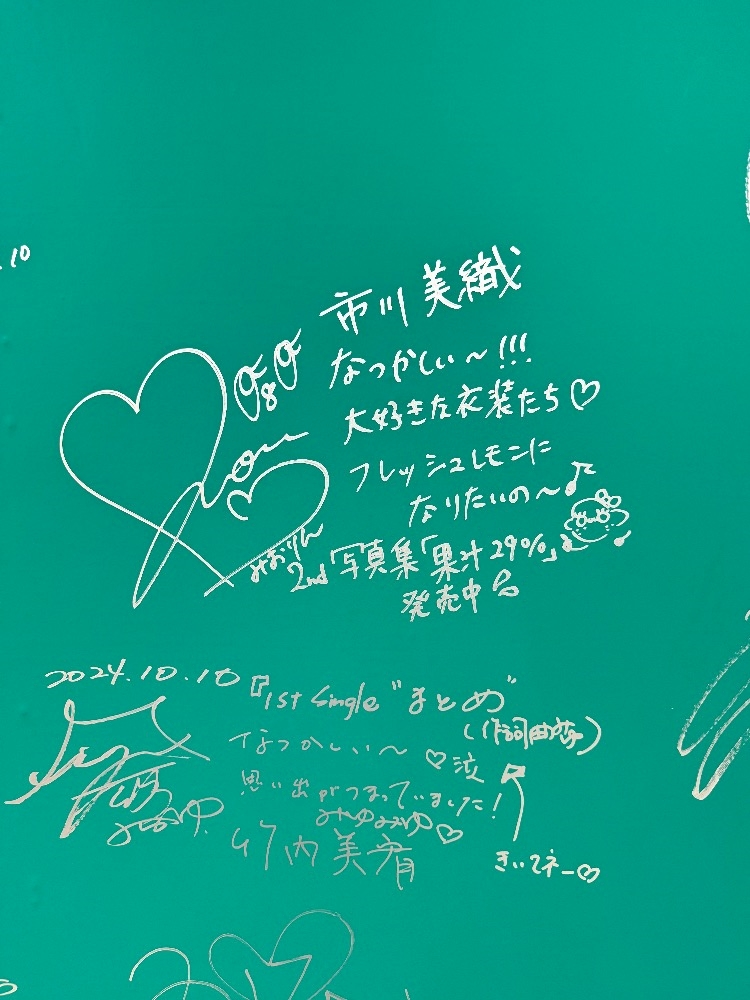 .10
市川美織
なつかしい〜!!!
大好きな衣装たち♡
フレッシュレモンに
なりたいの〜♪
みおりん
2nd 写真集「果汁29%」
発売中
2024.10.10
『1st Single "まとめ"
なつかしい〜 ♡泣
思い出がつまっていました!
みゆみゆ♡
竹内美宥
きいてネー♡
みゆ